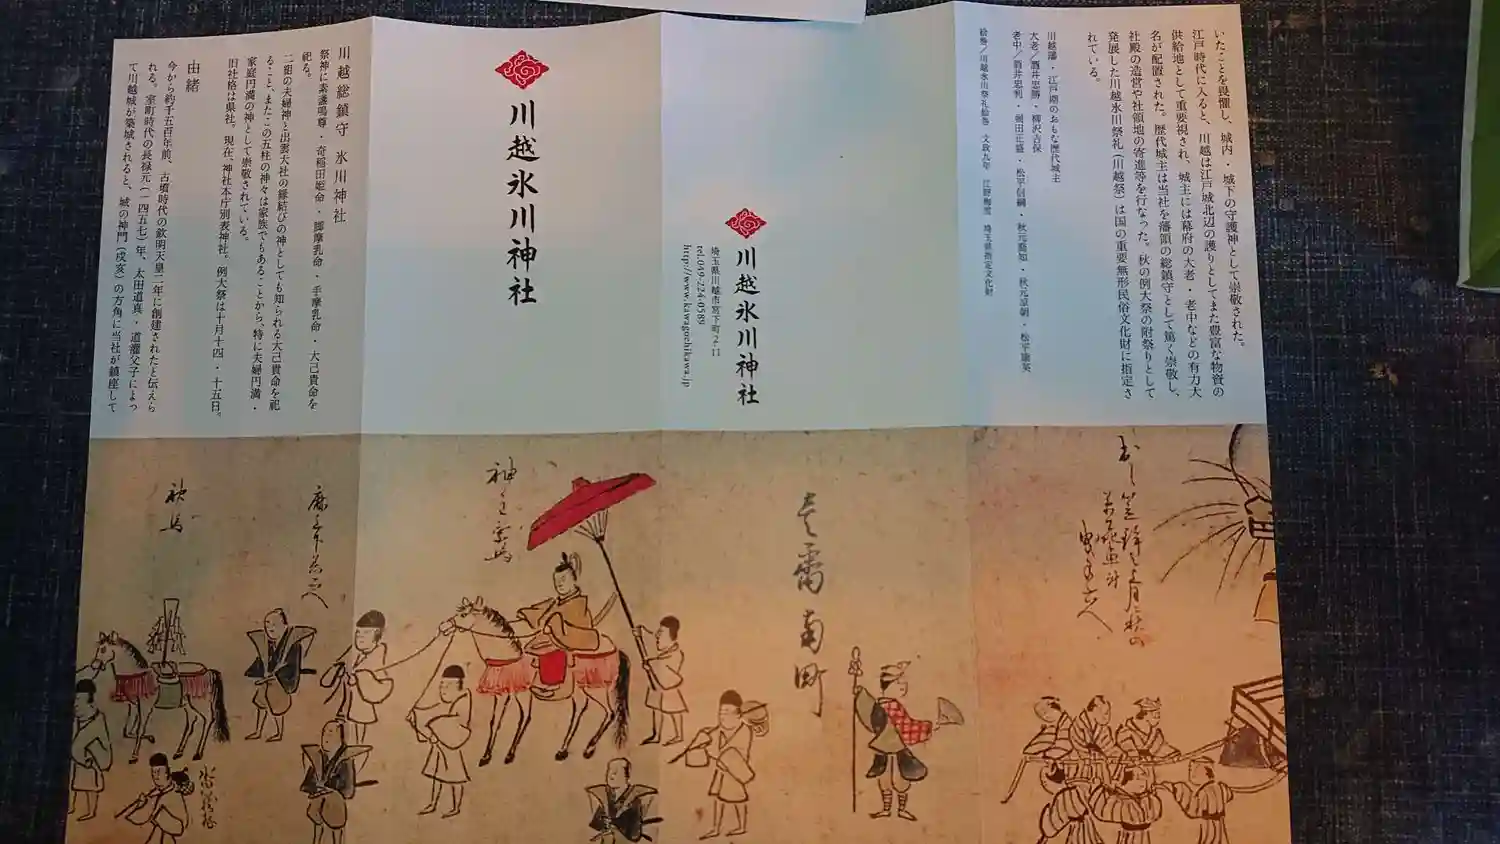 いたことを畏懼し、城内・城下の守護神として崇敬された。
江戸時代に入ると、川越は江戸城北辺の護りとしてまた豊富な物資の
供給地として重要視され、城主には幕府の大老・老中などの有力大
名が配置された。歴代城主は当社を藩領の総鎮守として篤く崇敬し、
社殿の造営や社領地の寄進等を行なった。秋の例大祭の附祭りとして
発展した川越氷川祭礼(川越祭)は国の重要無形民俗文化財に指定さ
れている。
川越藩・江戸期のおもな歴代城主
大老/酒井忠勝・柳沢吉保
老中/酒井忠利・堀田正盛・松平信綱・秋元喬知・秋元凉朝・松平康英
絵巻/川越氷川祭礼絵巻 文政九年 江野梅雪 埼玉県指定文化財
川越氷川神社
埼玉県川越市宮下町2-11
tel.049-224-0589
http://www.kawagoehikawa.jp
川越氷川神社
川越総鎮守 氷川神社
祭神に素盞嗚尊・奇稲田姫命・脚摩乳命・手摩乳命・大己貴命を
祀る。
二組の夫婦神と出雲大社の縁結びの神としても知られる大己貴命を祀
ること、またこの五柱の神々は家族でもあることから、特に夫婦円満・
家庭円満の神として崇敬されている。
旧社格は県社。現在、神社本庁別表神社。例大祭は十月十四・十五日。
由緒
今から約千五百年前、古墳時代の欽明天皇二年に創建されたと伝えら
れる。室町時代の長禄元(一四五七)年、太田道真・道灌父子によっ
て川越城が築城されると、城の神門(戌亥)の方角に当社が鎮座して
南町